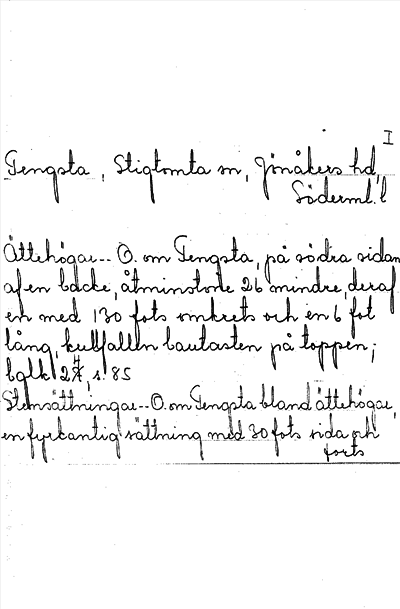 I
Tengsta, Stigtomta sn, Jönåkers hd,
Söderml. l
Ättehögar-- O. om Tengsta, på södra sidan
af en backe, åtminstone 26 mindre, deraf
en med 130 fots omkrets och en 6 fot
lång, kullfallen bautasten på toppen;
bglk 27, s. 85
Stensättningar--O. om Tengsta bland ättehögar,
en fyrkantig sättning med 30 fots sida och
forts